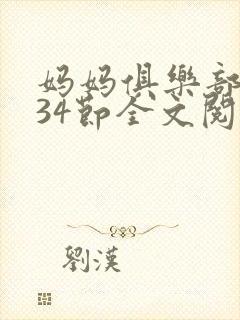 妈妈俱樂部
34節全文閱
劉漢